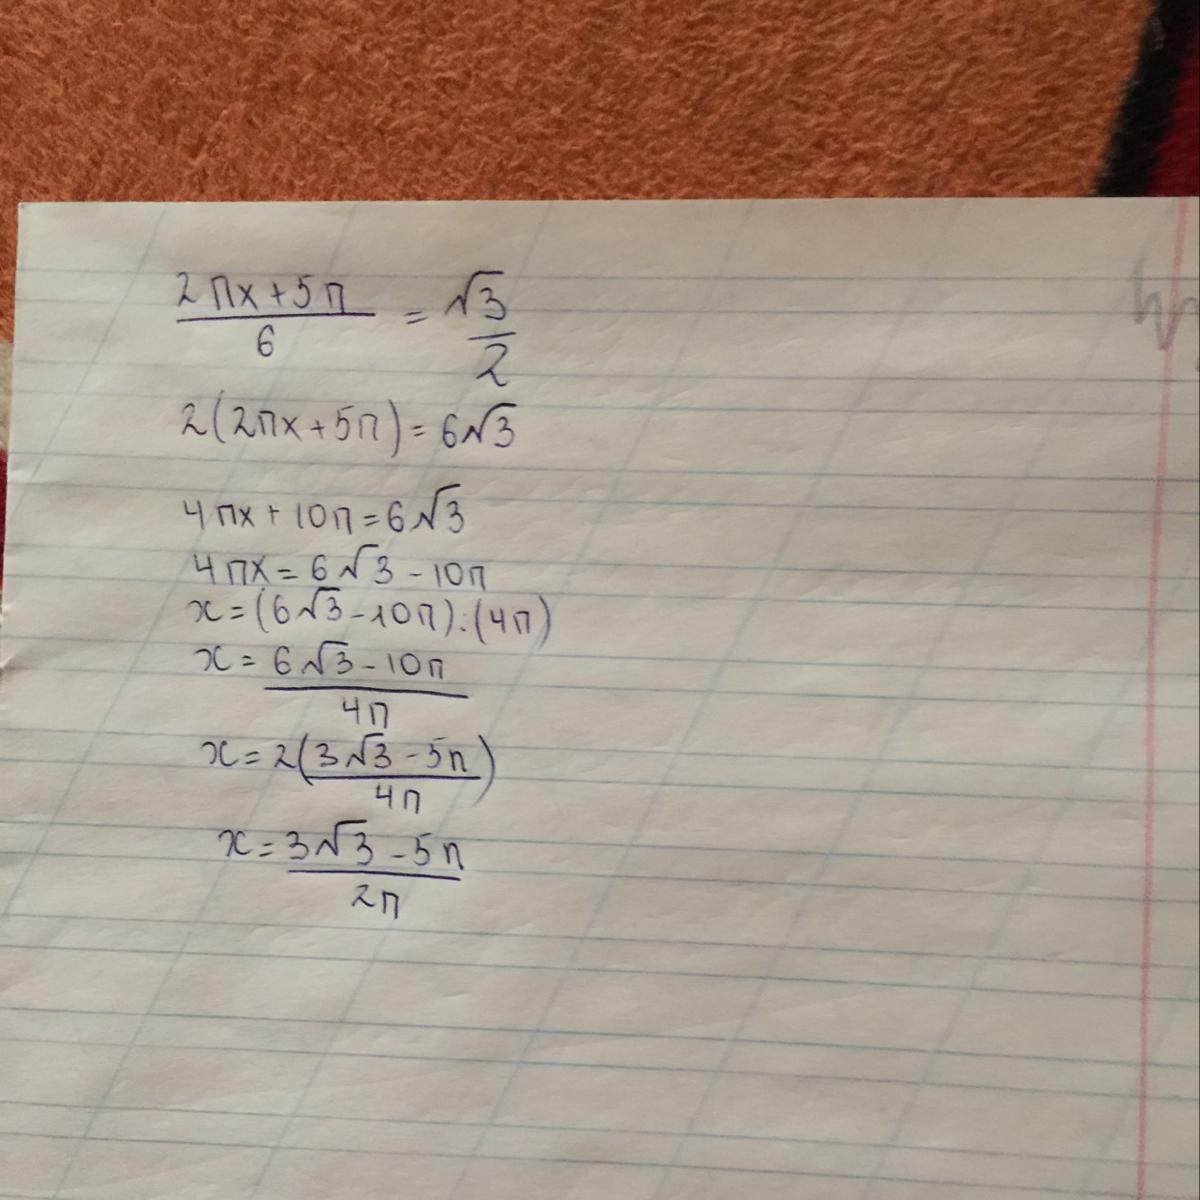 2πx+5π / 6 = √3 / 2
2(2πx+5π)=6√3
4πx+10π=6√3
4πx=6√3-10π
x=(6√3-10π):(4π)
x=6√3-10π / 4π
x=2(3√3-5π / 4π)
x=3√3-5π / 2π